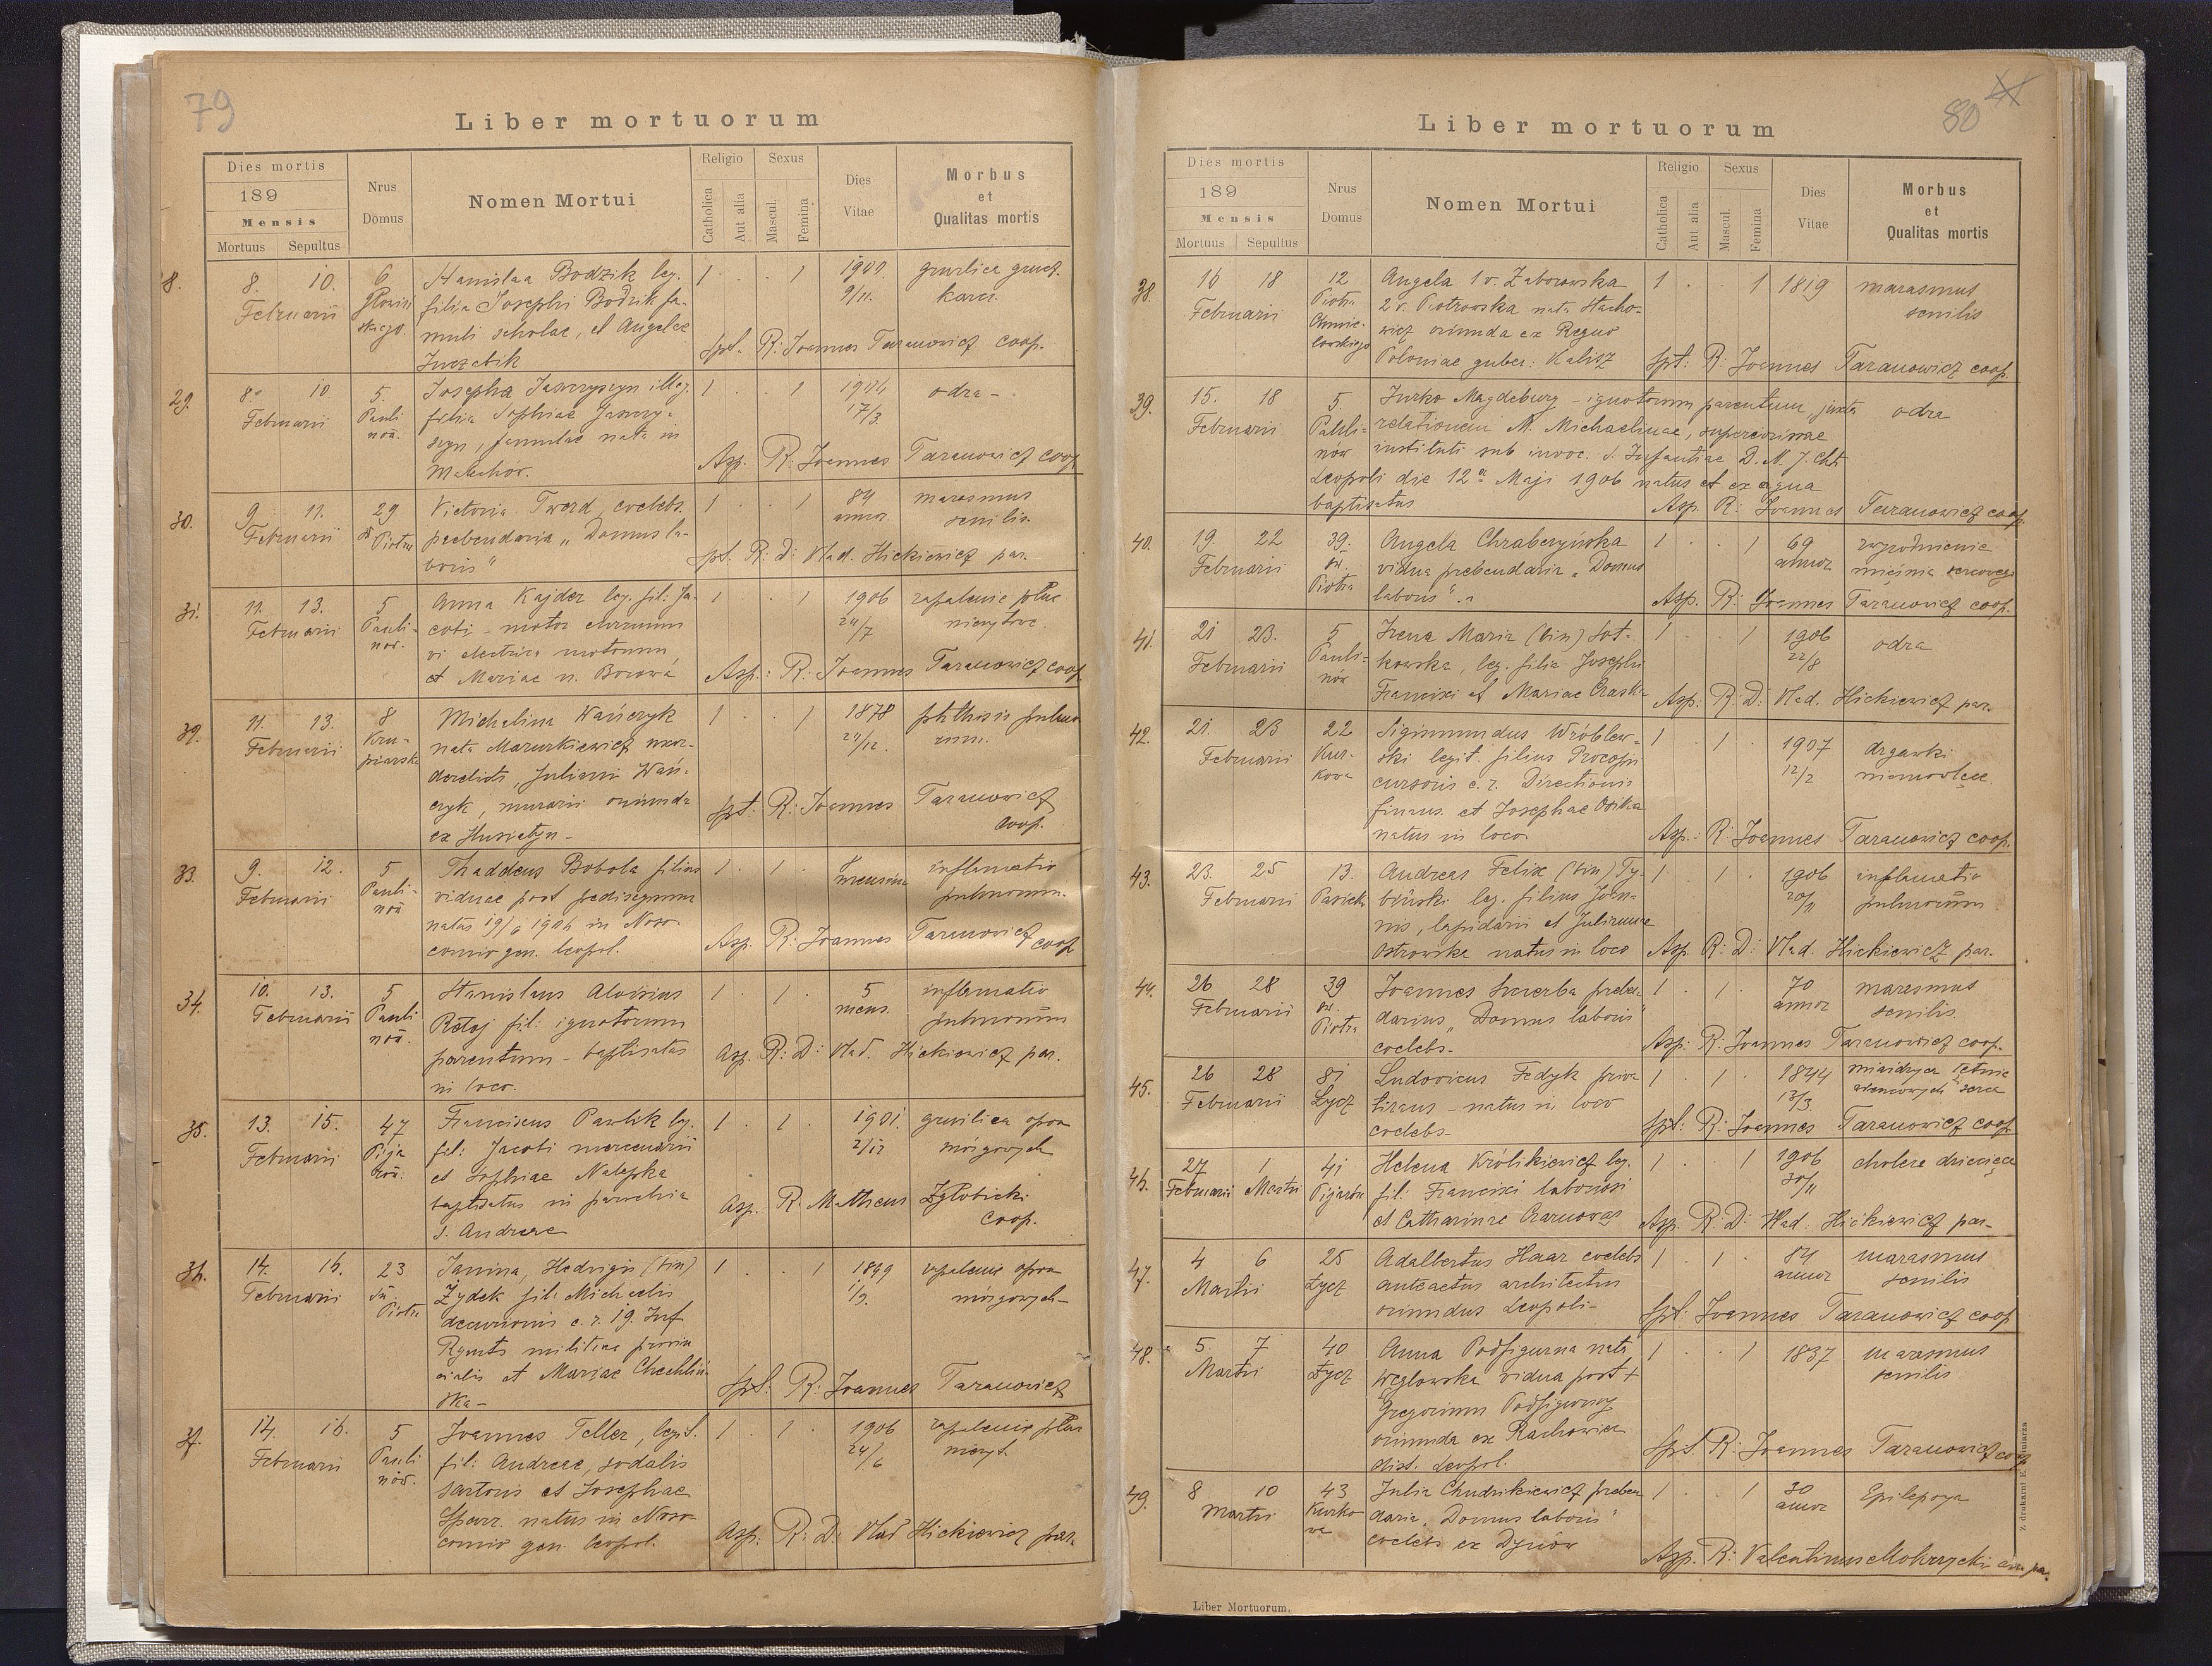 79
Liber mortuorum
Dies mortis
189
Mensis
Mortuus Sepultus
Nrus Domus
Nomen Mortui
Religio
Catholica
Aut alia
Sexus
Mascul.
Femina
Dies Vitae
Morbus et Qualitas mortis
8. 8. 10. 6 Stanislaa Bodzik leg. 1 . . 1 gruzlica grucz.
Februarii filia Josephi Bodzik fa- 9/11.
muli scholae, et Angelae
spt. R: Joannes Taranowicz coop.
29. 8. 10. 5. Josepha illeg. 1 . . 1 odra -
Februarii Pauli filia Sophiae 17/3.
nów. famulae nata in
Asp. R: Joannes Taranowicz coop.
30. 9. 11. 29 Victoria Twerd, coelebs. 1 . . 1 84 marasmus
Februarii Piotra prebendaria "Domus la- annor. senilis.
boris" spt. R: D: Vlad. Hickiewicz par.
31. 11. 13. 5 Anna Kajder leg. fil: Ja- 1 . . 1 1906 zapalenie płuc
Februarii Pauli- cobi - motor 24/7
nów. vi electrica motorum
et Mariae n. Borowa Asp.: R: Joannes Taranowicz coop.
32. 11. 13. 8 Michalina Wańczyk 1 . . 1 1878 phthisis pulmo
Februarii Kru- nata Mazurkiewicz uxor 24/12. num.
piarska derelicta, Juliani Wań-
czyk, murarii oriunda spt: R: Joannes Taranowicz
ex Husiatyn - coop.
33. 9. 12. 5 Thaddeus Bobola filius 1 . 1 . inflamatio
Februarii Pauli- viduae post pedisequum pulmonum.
nów natus 19/6 1906 in Noso-
comio gen. leopol. Asp. R: Joannes Taranowicz coop
34. 10. 13. 5 Stanislaus Aloisius 1 . 1 . 5 inflamatio
Februarii Pauli fil: ignotorum mens. pulmonum
nów. parentum - baptisatus Asp. R: D: Vlad. Hickiewicz par.
in loco.
35. 13. 15. 47 Franciscus Pawlik leg. 1 . 1 . 1901. gruźlica opon
Februarii Pija fil: Jacobi mercenarii 2/12 mózgowych
rów. et Sophiae Nalepka
baptisatus in parochia Asp. R: Matheus Zgłobicki
S. Andreae coop.
36. 14. 16. 23 Janina, Hedvigis (bin) 1 . . 1 zapalenie opon
Februarii Piotra Żydek fil: Michaelis 1/9. mózgowych -
decurionis c. r. 19. Inf
et Mariae Chechliń-
ska - spt: R: Joannes Taranowicz
37. 14. 16. 5 Joannes Teller, legit. 1 . 1 . 1906 zapalenie płuc
Februarii Pauli fil: Andreae, sodalis 24/6
nów. sartoris et Josephae
natus in Noso-
comio gen. leopol. Asp. R: D: Vlad Hickiewicz par.
80
Liber mortuorum
Dies mortis
189
Mensis
Mortuus Sepultus
Nrus Domus
Nomen Mortui
Religio
Catholica
Aut alia
Sexus
Mascul.
Femina
Dies Vitae
Morbus et Qualitas mortis
38. 16 18 12 Angela 1 v. Zaborowska 1 . . 1 1819 marasmus
Februarii Piotra 2 v. Piotrowska nata Stacho- senilis
Chmie- wicz oriunda ex Regno
lowskiego Poloniae guber: Kalisz spt: R: Joannes Taranowicz coop.
39. 15. 18 5. Jurko Magdeburg - ignotorum parentum, juxta odra
Februarii Pauli- relationem M. Michaelinae, superiorissae
now instituti sub invoc. S. Infantiae D. N. J. Chti
Leopoli die 12a Maji 1906 natus et ex aqua
baptisatus Asp. R: Joannes Taranowicz coop.
40. 19. 22 39. Angela 1 . . 1 69 zwyrodnienie
Februarii św. vidua prebendaria "Domus annor mięśnia sercowego
Piotra laboris". Asp. R: Joannes Taranowicz coop.
41. 21 23. 5 Irena Maria (bin) Sot- 1 . . 1 1906 odra
Februarii Pauli- kowska, leg. filia Josephi 22/8
nów Francisci et Mariae Asp. R: D: Vlad. Hickiewicz par.
42. 21. 23 22 Sigismundus Wróblew- 1 . 1 . 1907 drgawki
Februarii Kur- ski legit. filius Procopii 12/2
kowa cursoris c. r. Directionis
finans. et Josephae Osika
natus in loco Asp.: R: Joannes Taranowicz coop.
43. 23. 25 13. Andreas Felix (bin) Ty- 1 . 1 . 1906 inflamatio
Februarii Pasieki biński leg. filius Joan- 20/11 pulmonum
nis, lapidarii et Julianae
Ostrowska natus in loco Asp. R: D: Vlad. Hickiewicz par.
44. 26 28 39 Joannes preben 1 . 1 . 70 marasmus
Februarii św. darius "Domus laboris" annor senilis.
Piotra coelebs - Asp: R: Joannes Taranowicz coop.
45. 26 28 81 Ludovicus Fedyk priva 1 . 1 . 1844 miażdżyca tętnic
Februarii Łycz tizans - natus in loco wieńcowych serca
coelebs - spt: R: Joannes Taranowicz coop.
46. 27 1 41 Helena Królikiewicz leg. 1 . . 1 1906 cholera dziecięca
Februarii Martii Pijarów fil: Francisci laboriosi 30/11
et Catharinae Asp. R: D: Vlad. Hickiewicz par -
47. 4 6 25 Adalbertus Haar coelebs 1 . 1 . 84 marasmus
Martii Łycz anteactus architectus annor senilis
oriundus Leopoli - spt: Joannes Taranowicz coop
48. 5. 7 40 Anna Podfigurna nata 1 . . 1 1837 marasmus
Martii Łycz Węglowska vidua post + senilis
Gregorium Podfigurny
oriunda ex Rachowiec
dist. Leopol. spt. R: Joannes Taranowicz coop
49. 8 10 43 Julia Chudzikiewicz preben 1 . . 1 30 Epilepsya
Martii Kurko daria "Domus laboris" annor
wa coelebs ex Dynów
Asp. R: Valentinus Mokrzycki
Liber Mortuorum.